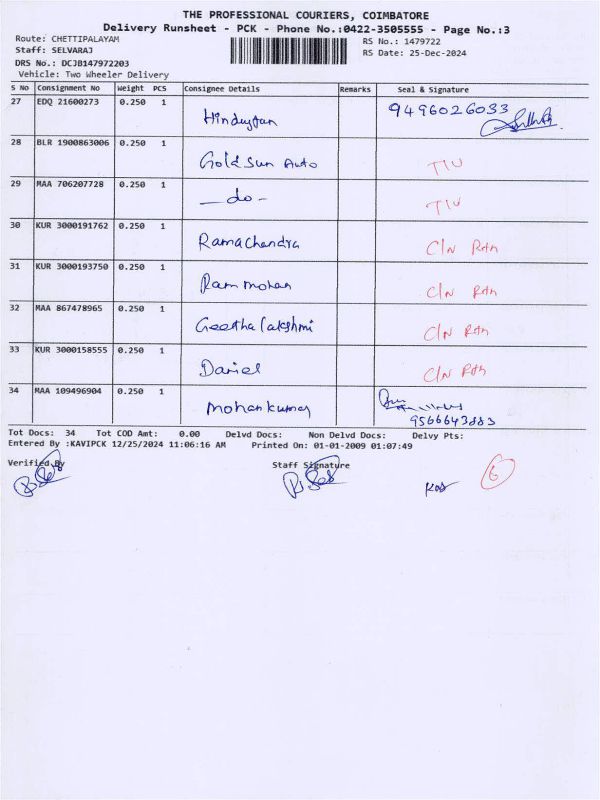 THE PROFESSIONAL COURIERS, COIMBATORE
Delivery Runsheet - PCK - Phone No.:0422-3505555 - Page No.:3
Route: CHETTIPALAYAM RS No.: 1479722
Staff: SELVARAJ RS Date: 25-Dec-2024
DRS No.: DCJB147972203
Vehicle: Two Wheeler Delivery
S No Consignment No Weight PCS Consignee Details Remarks Seal & Signature
27 EDQ 21600273 0.250 1 Hindustan 9496026033
28 BLR 1900863006 0.250 1 Gold Sun Auto TIU
29 MAA 706207728 0.250 1 - do - TIU
30 KUR 3000191762 0.250 1 Ramachandra C/N Rtn
31 KUR 3000193750 0.250 1 Ram mohan C/N Rtn
32 MAA 867478965 0.250 1 Geetha lakshmi C/N Rtn
33 KUR 3000158555 0.250 1 Daniel C/N Rtn
34 MAA 109496904 0.250 1 Mohan kumar
9566643883
Tot Docs: 34 Tot COD Amt: 0.00 Delvd Docs: Non Delvd Docs: Delvy Pts:
Entered By :KAVIPCK 12/25/2024 11:06:16 AM Printed On: 01-01-2009 01:07:49
Verified By Staff Signature
6